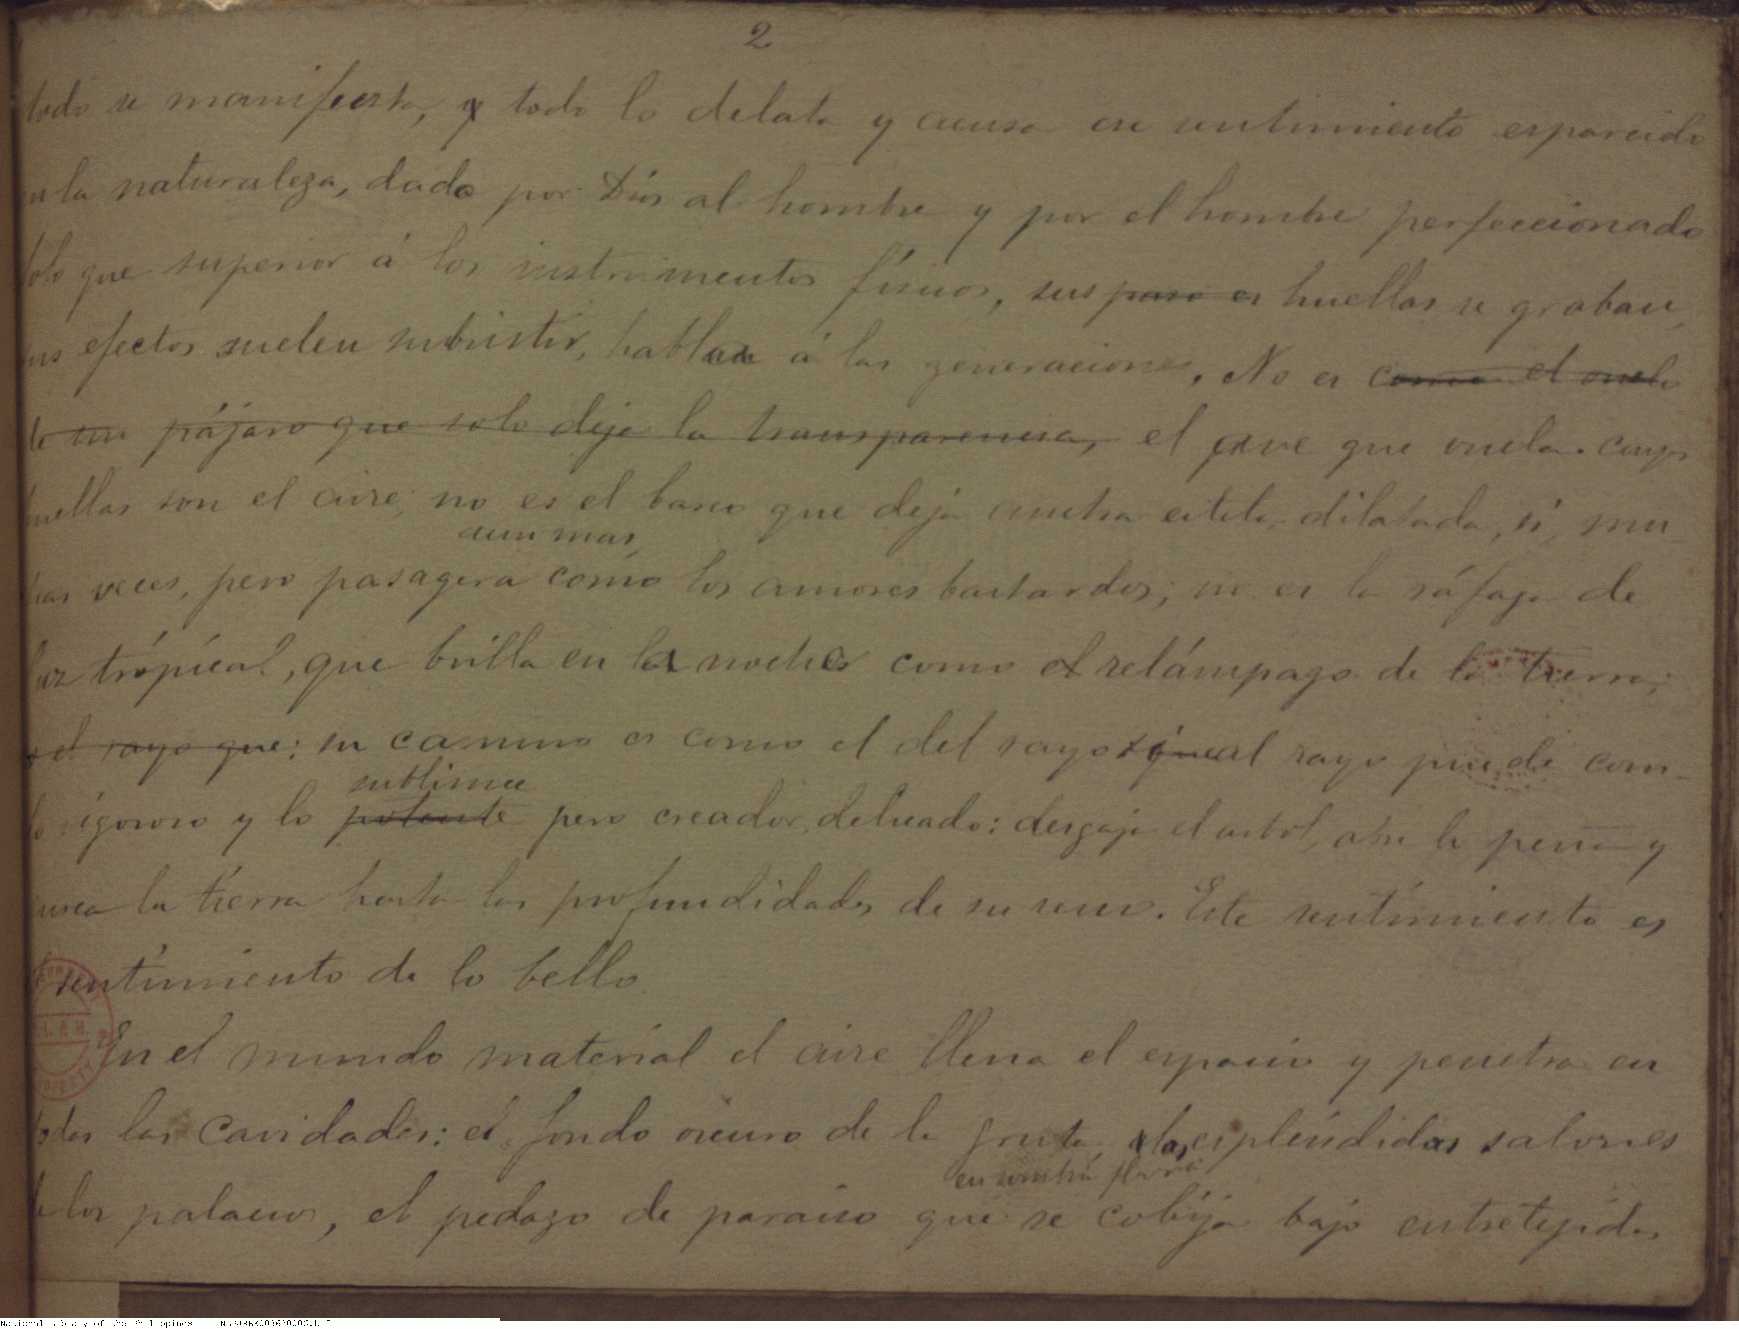 2
todo se manifiesta, y todo lo delata y acusa ese sentimiento esparcido
en la naturaleza, dado por Dios al hombre y por el hombre perfeccionado
solo que superior á los instrumentos físicos, sus paso es huellas se graban,
sus efectos suelen subsistir, hablan á las generaciones. No es como el vuelo
de un pájaro que solo deja la transparencia, el ave que vuela cuyas
huellas son el aire; no es el barco que deja ancha estela, dilatada, si, mu-
aun mas,
chas veces, pero pasagera como los amores bastardos; no es la ráfaga de
luz trópical, que brilla en la noche como el relámpago de la tierra;
el rayo que: su camino es como el del rayo al rayo puede com-
sublime
rigoroso y lo potente pero creador, delicado: desgaja el arbol, abre la peña y
surca la tierra hasta las profundidades de su seno. Este sentimiento es
el sentimiento de lo bello.
En el mundo material el aire llena el espacio y penetra en
todas las cavidades: el fondo oscuro de la gruta, las espléndidas salones
en sombra
de los palacios, el pedazo de paraiso que se cobija bajo entretejidas